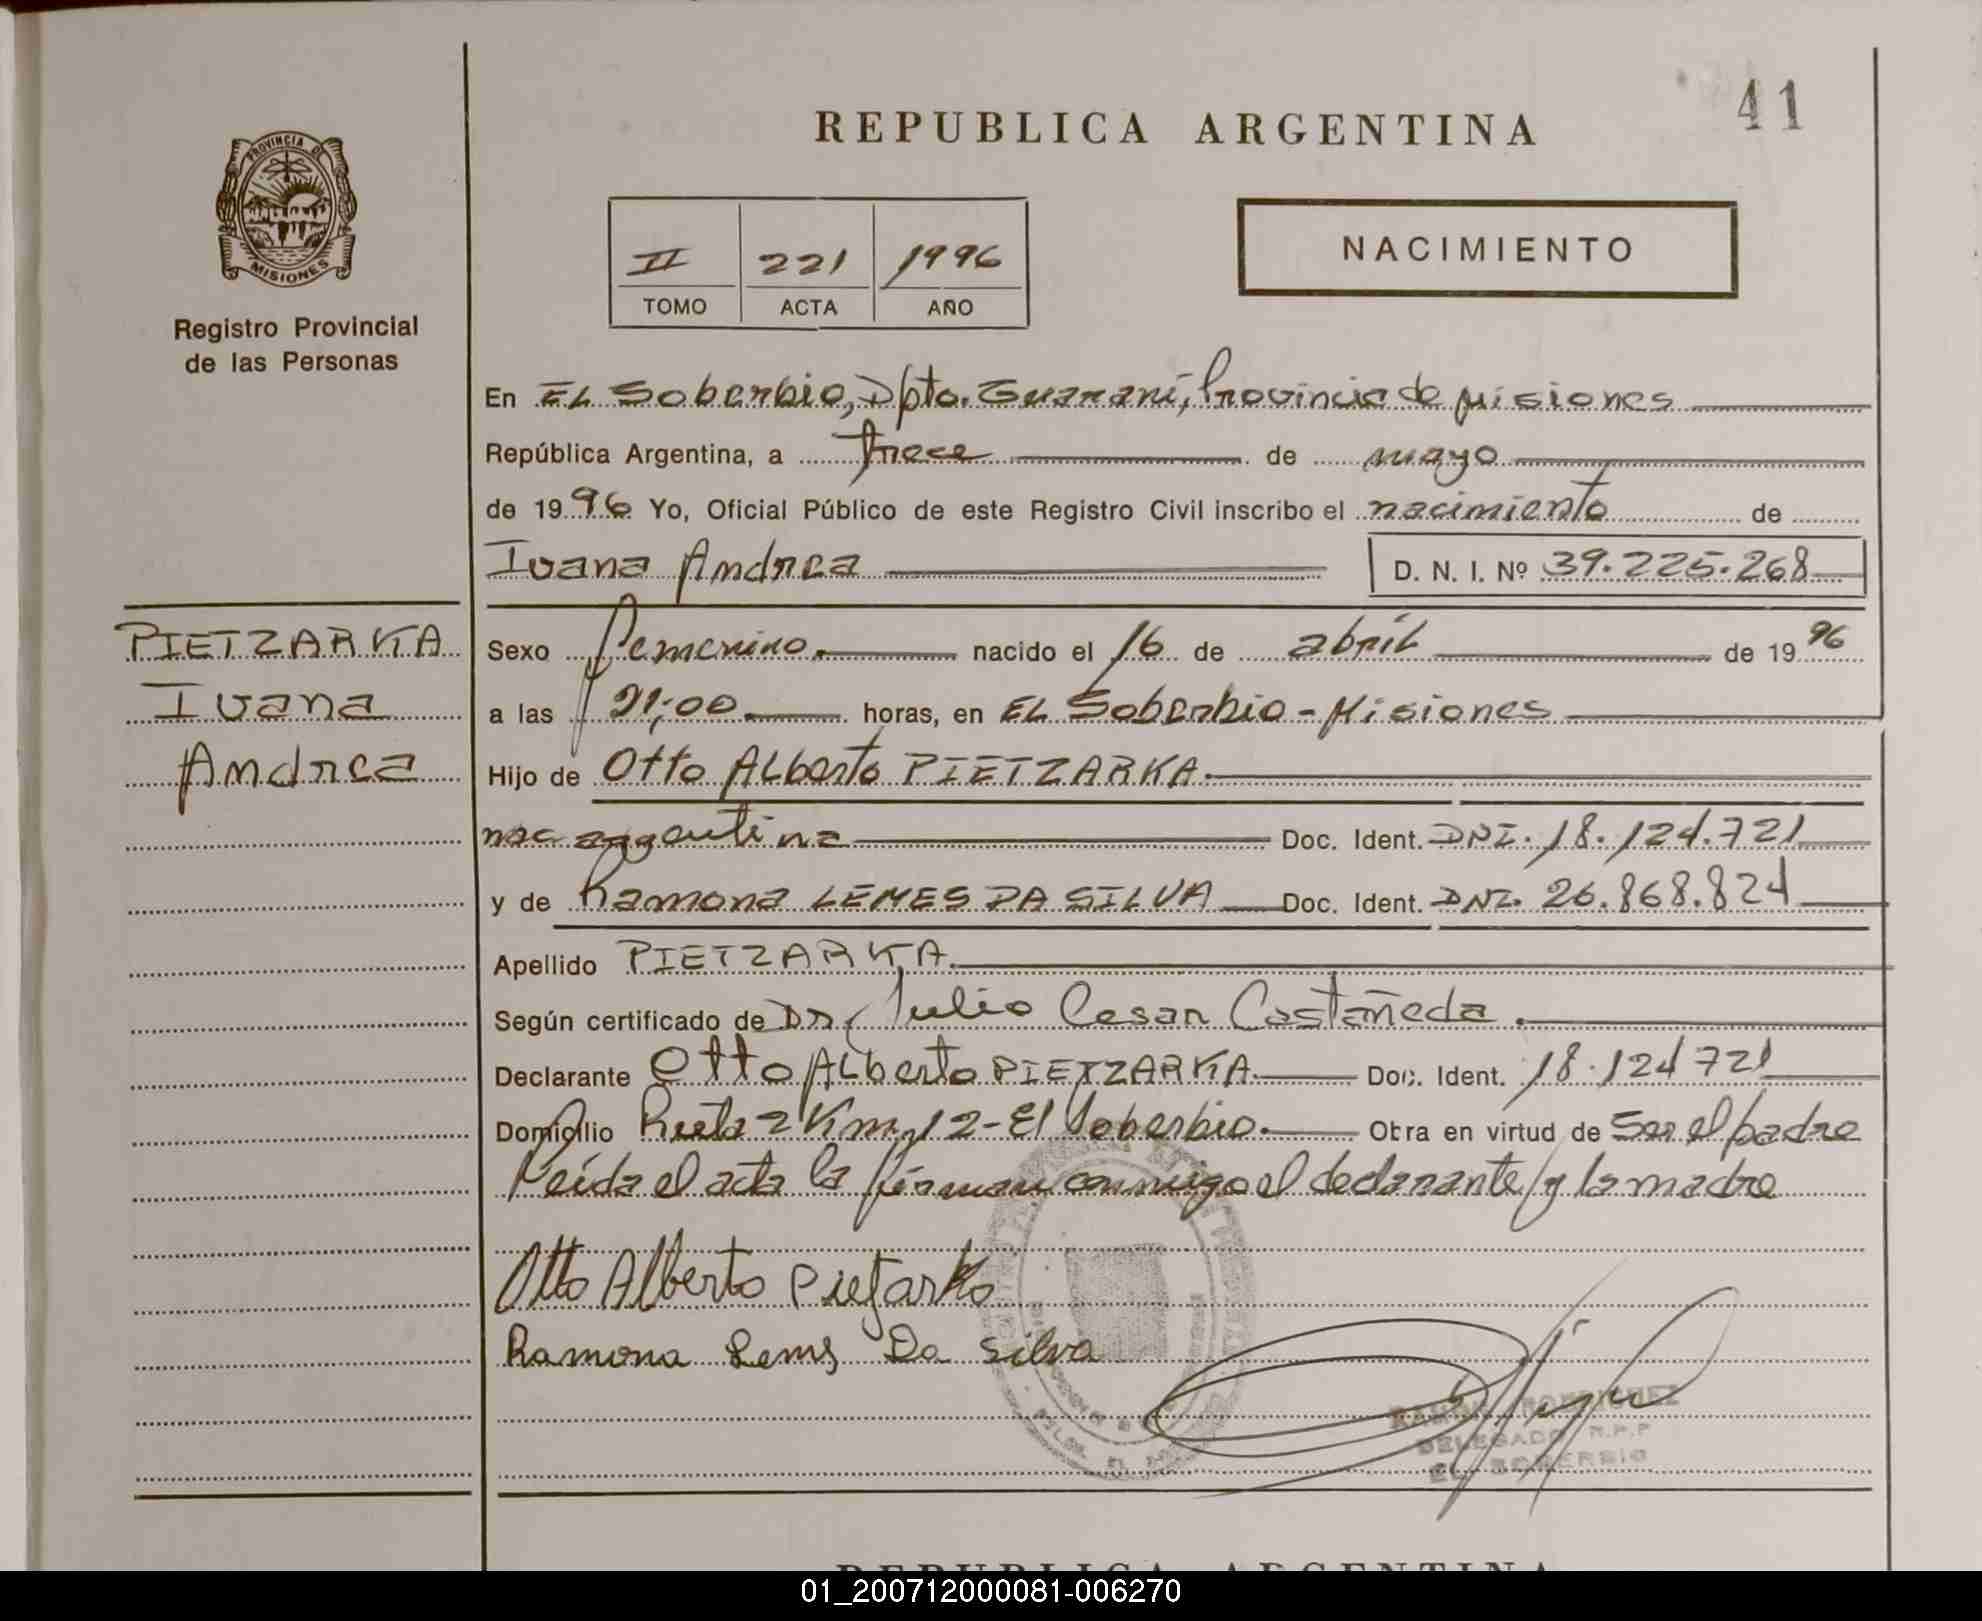 41
REPUBLICA ARGENTINA
PROVINCIA DE
MISIONES
Registro Provincial
de las Personas
II 221 1996
TOMO ACTA AÑO
NACIMIENTO
En EL Soberbio, Dpto. Guaraní, Provincia de Misiones
República Argentina, a trece de mayo
de 1996 Yo, Oficial Público de este Registro Civil inscribo el nacimiento de
Ivana Andrea D. N. I. Nº 39.225.268
PIETZARKA
Ivana
Andrea
Sexo femenino. nacido el 16 de abril de 1996
a las 21,00 horas, en EL Soberbio - Misiones
Hijo de Otto ALberto PIETZARKA.
nac argentina Doc. Ident. DNI. 18.124.721
y de Ramona LEMES DA SILVA Doc. Ident. DNI. 26.868.824
Apellido PIETZARKA.
Según certificado de Dr. Julio Cesar Castañeda.
Declarante Otto ALberto PIETZARKA Doc. Ident. 18.124721
Domicilio Ruta 2 Km. 12 - El Soberbio. Obra en virtud de Ser el padre
Leída el acta la firman conmigo el declarante y la madre
Otto Alberto Pietarka
Ramona Lems Da Silva
DELEGADO R.P.P
EL SOBERBIO
REPUBLICA ARGENTINA
01_200712000081-006270